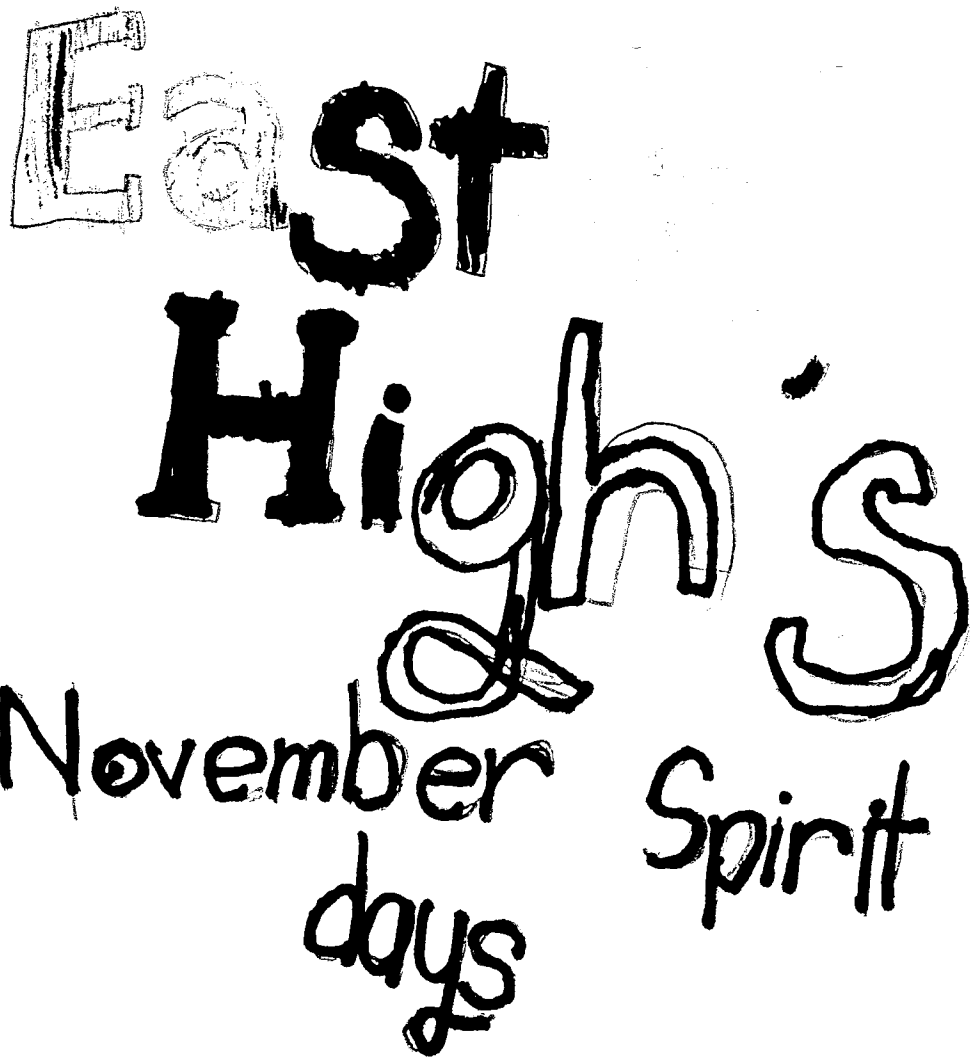 East
High's
November Spirit
days